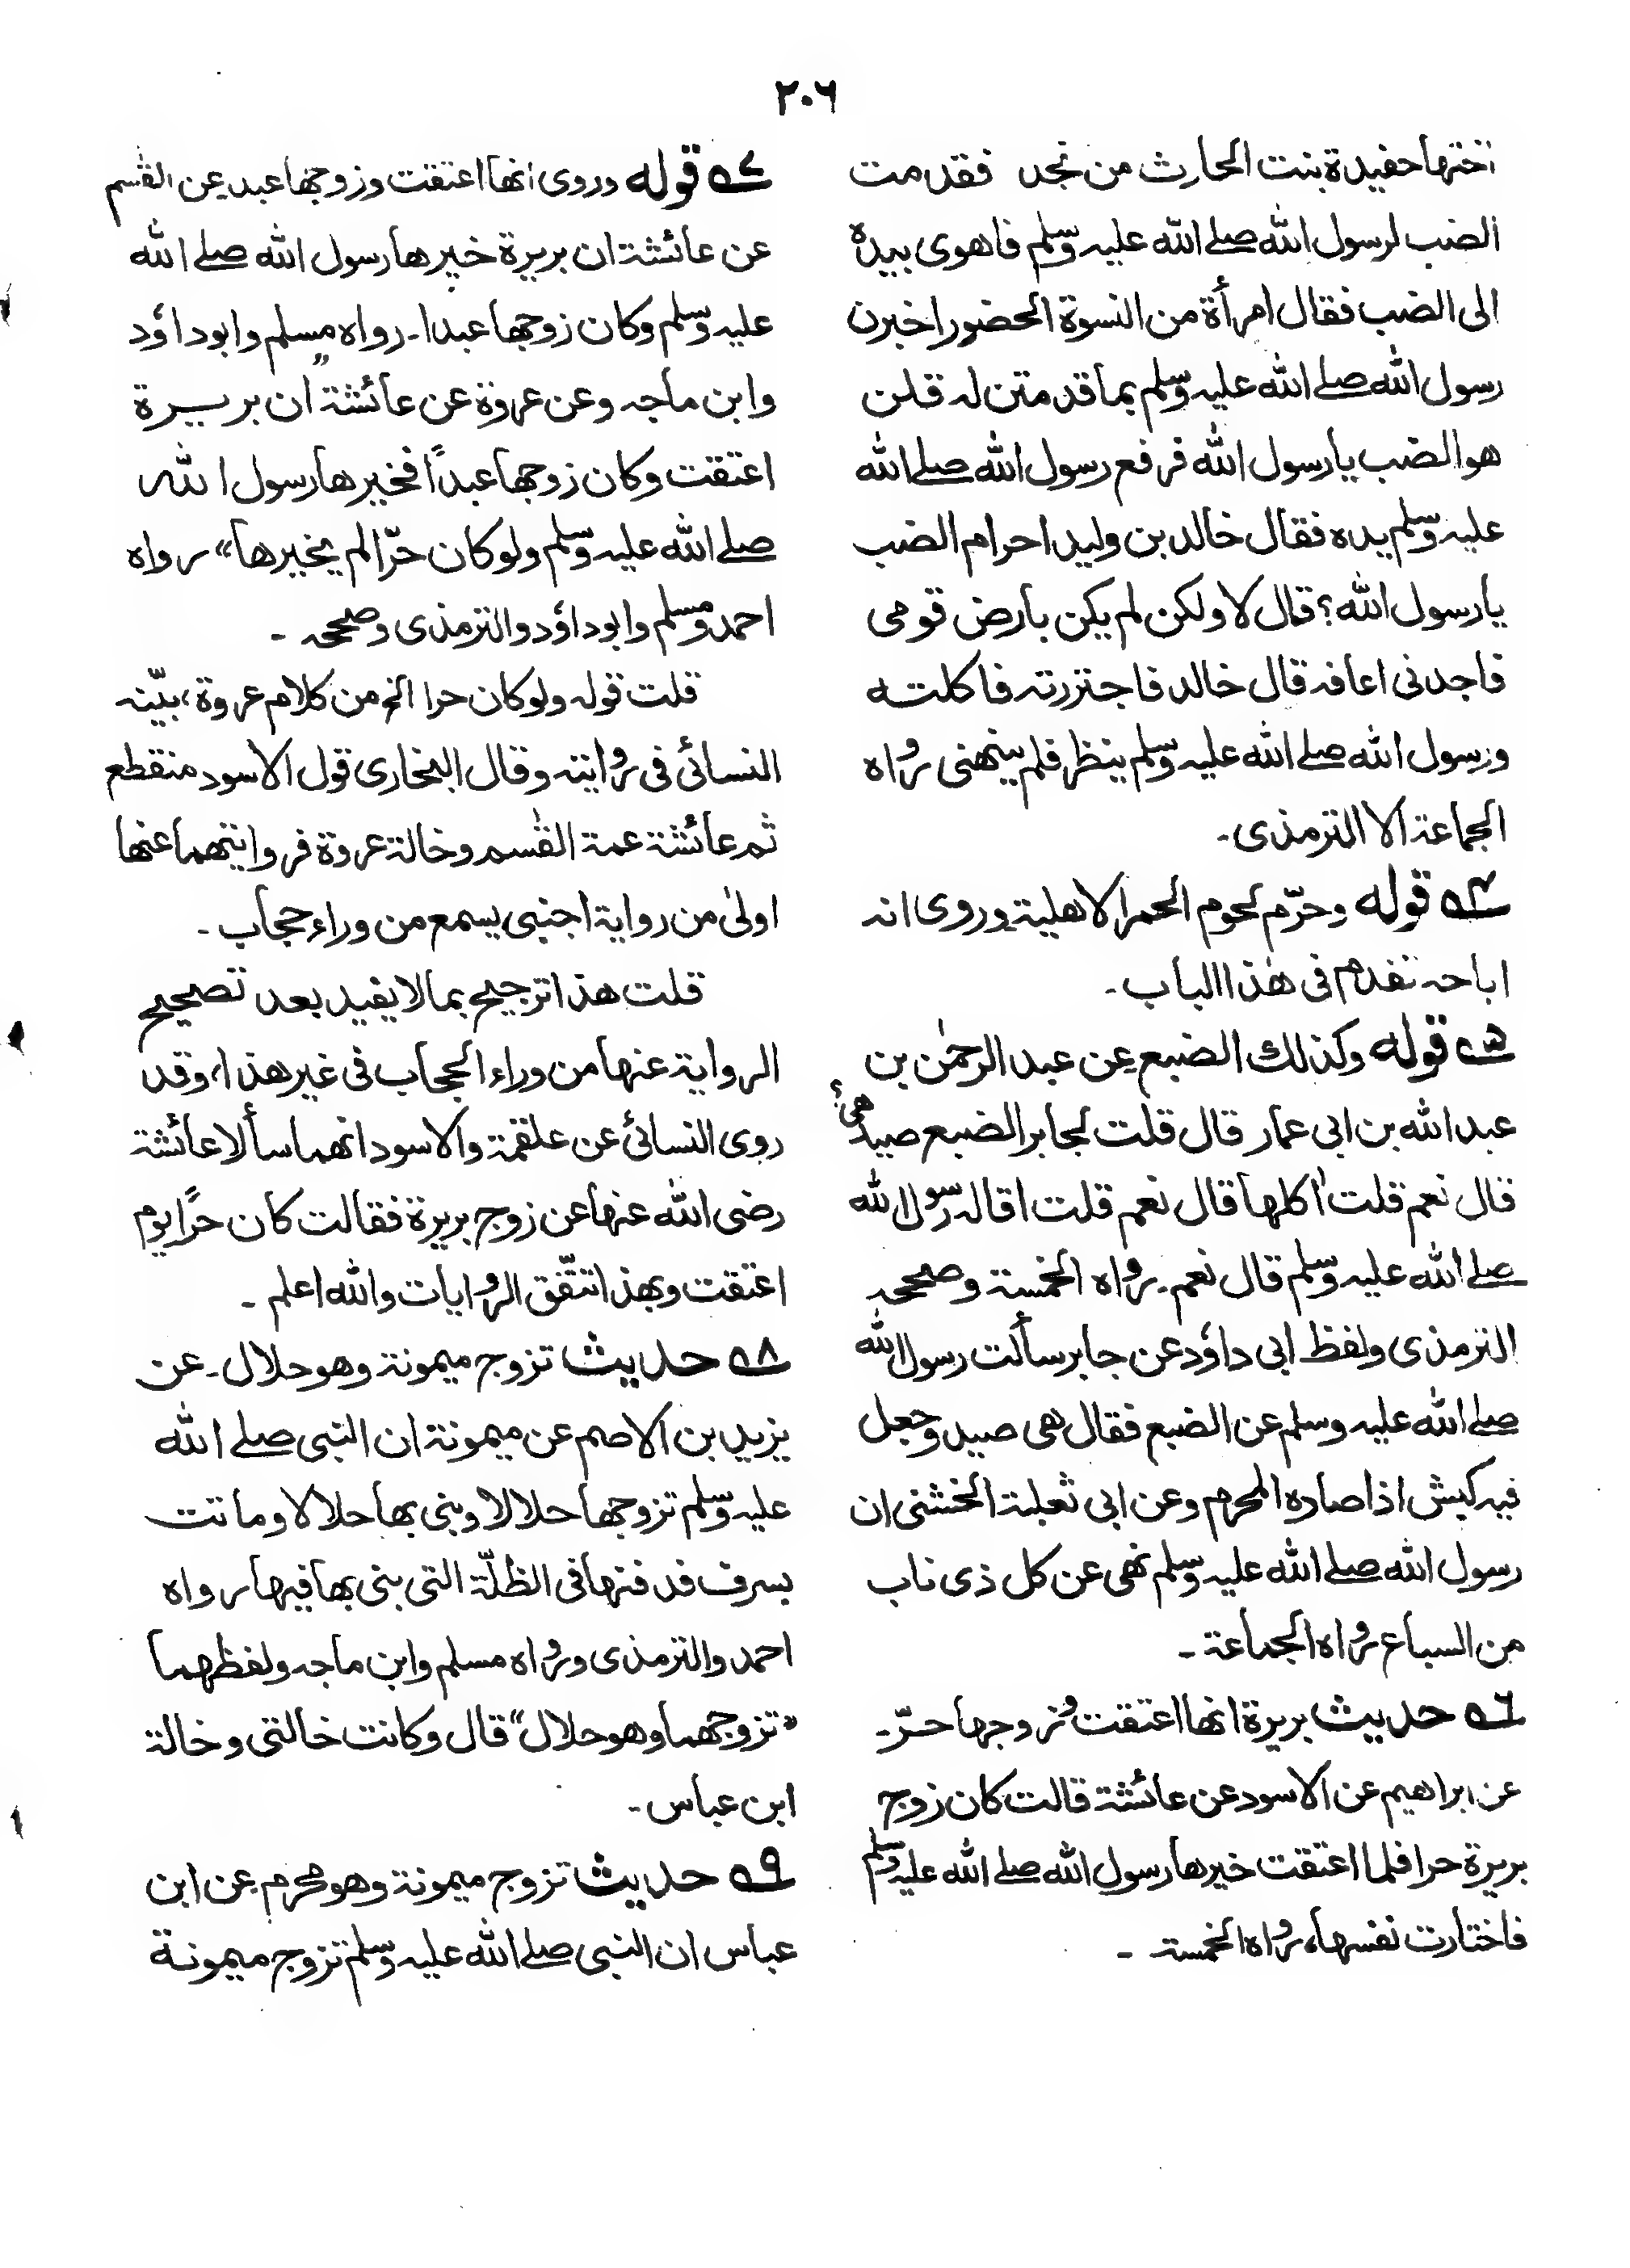 ٢٠٦
اختها حفيدة بنت الحارث من نجد فقدمت
الضب لرسول الله صلے الله عليه وسلم فاهوى بيده
الى الضب فقال امرأة من النسوة الحضور اخبرن
رسول الله صلے الله عليه وسلم بما قدمتن له قلن
هو الضب يا رسول الله فرفع رسول الله صلے الله
عليه وسلم يده فقال خالد بن وليد احرام الضب
يا رسول الله؟ قال لا ولكن لم يكن بارض قومى
فاجدنى اعافه قال خالد فاجتزرته فاكلته
ورسول الله صلے الله عليه وسلم ينظر فلم ينهنى رواه
الجماعة الا الترمذى۔
٥٤ قوله وحرّم لحوم الحمر الاهلية وروى انه
اباحه تقدم فى هٰذا الباب۔
٥٥ قوله وكذلك الضبع عن عبد الرحمٰن بن
عبد الله بن ابى عمار قال قلت لجابر الضبع صيد هى؟
قال نعم قلت اٰكلها قال نعم قلت اقاله رسول الله
صلے الله عليه وسلم قال نعم۔ رواه الخمسة وصححه
الترمذى ولفظ ابى داؤد عن جابر سألت رسول الله
صلے الله عليه وسلم عن الضبع فقال هى صيد وجعل
فيه كبش اذا صاده المحرم وعن ابى ثعلبة الخشنى ان
رسول الله صلے الله عليه وسلم نهى عن كل ذى ناب
من السباع رواه الجماعة۔
٥٦ حديث بريرة انها اعتقت وزوجها حرّ۔
عن ابراهيم عن الاسود عن عائشة قالت كان زوج
بريرة حرا فلما اعتقت خيرها رسول الله صلے الله عليه وسلم
فاختارت نفسها، رواه الخمسة۔
٥٧ قوله وروى انها اعتقت وزوجها عبد عن القٰسم
عن عائشة ان بريرة خيرها رسول الله صلے الله
عليه وسلم وكان زوجها عبدا۔ رواه مسلم وابوداؤد
وابن ماجه وعن عروة عن عائشة "ان بريرة
اعتقت وكان زوجها عبدًا فخيرها رسول الله
صلے الله عليه وسلم ولو كان حرّا لم يخيرها" رواه
احمد ومسلم وابوداؤد والترمذى وصححه۔
قلت قوله ولو كان حرا الخ من كلام عروة، بيّنه
النسائى فى روايته وقال البخارى قول الاسود منقطع
ثم عائشة عمة القٰسم وخالة عروة فروايتهما عنها
اولىٰ من رواية اجنبى يسمع من وراء حجاب۔
قلت هذا ترجيح بما لا يفيد بعد تصحيح
الرواية عنها من وراء الحجاب فى غير هذا، وقد
روى النسائى عن علقمة والاسود انهما سألا عائشة
رضى الله عنها عن زوج بريرة فقالت كان حرًا يوم
اعتقت وبهذا تتّفق الروايات والله اعلم۔
٥٨ حديث تزوج ميمونة وهو حلال۔ عن
يزيد بن الاصم عن ميمونة ان النبى صلے الله
عليه وسلم تزوجها حلالا وبنى بها حلالا وماتت
بسرف فدفنها فى الظلّة التى بنى بها فيها رواه
احمد والترمذى ورواه مسلم وابن ماجه ولفظهما
"تزوجهما وهو حلال" قال وكانت خالتى وخالة
ابن عباس۔
٥٩ حديث تزوج ميمونة وهو محرم عن ابن
عباس ان النبى صلے الله عليه وسلم تزوج ميمونة